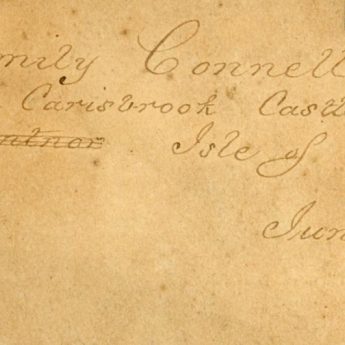 mily Connell
Carisbrook Cast
ntnor Isle of
Jun